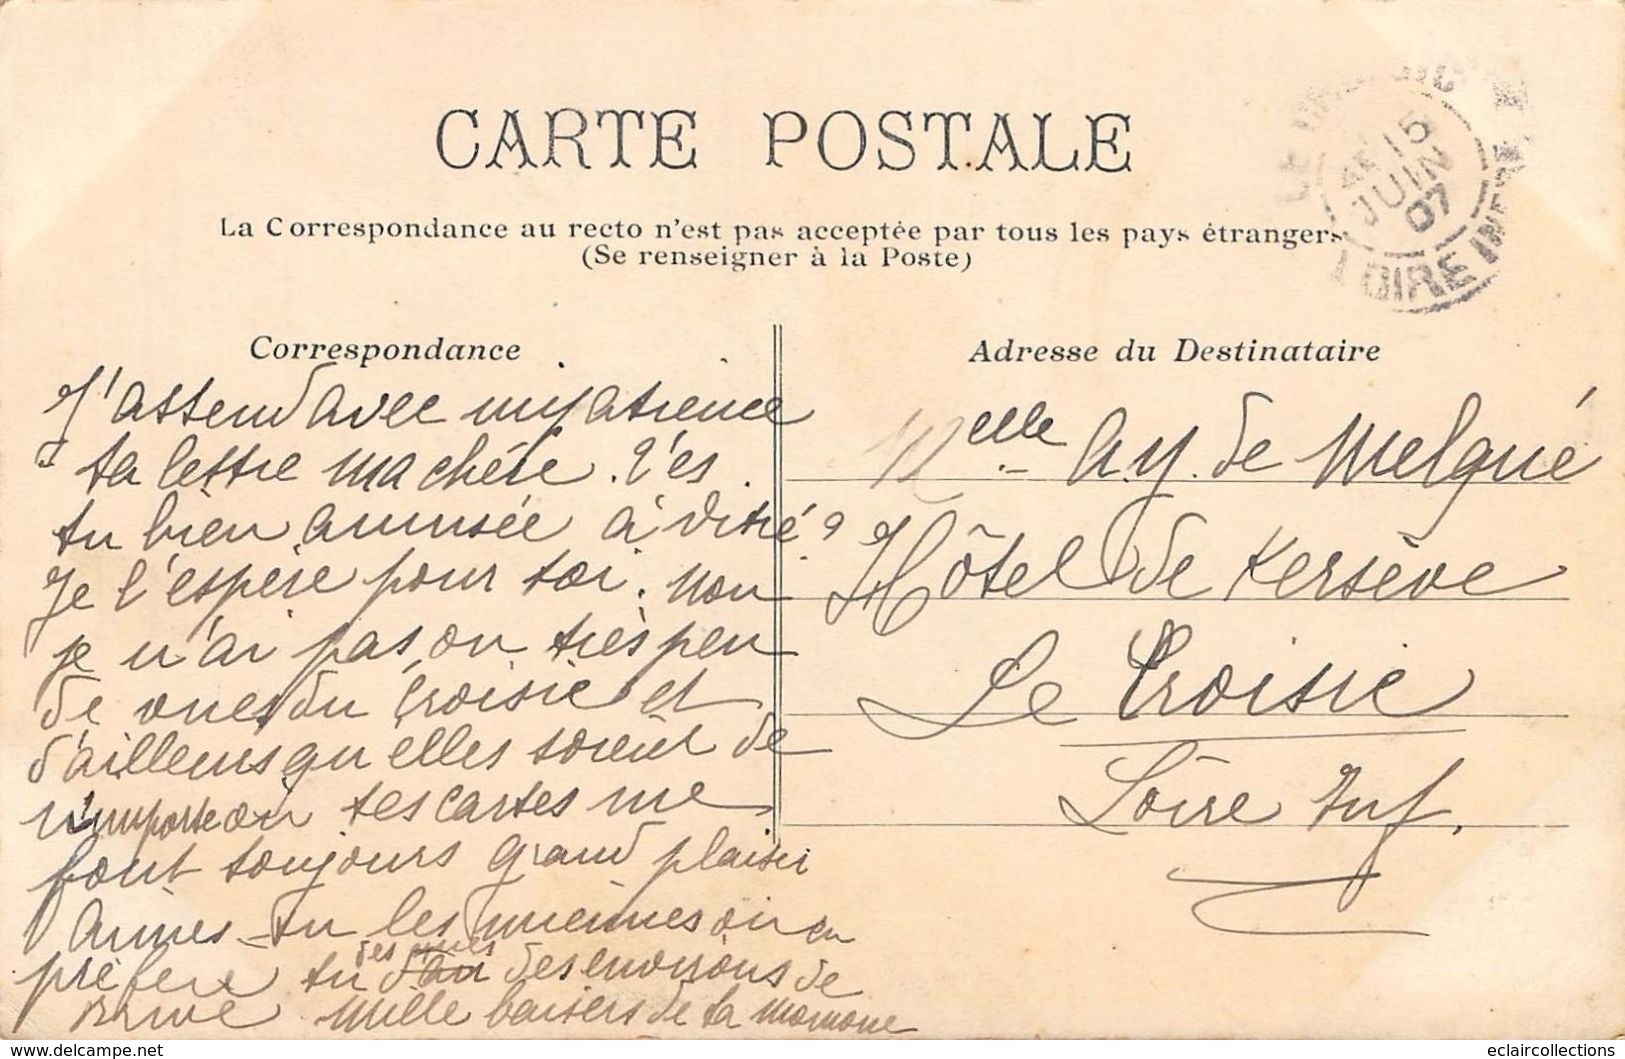 CARTE POSTALE
La Correspondance au recto n'est pas acceptée par tous les pays étrangers
(Se renseigner à la Poste)
15
JUIN
07
LOIRE INFRE
Correspondance
J'attend avec impatience
ta lettre ma chére. T'es
tu bien amusée à Vitré ?
Je l'espère pour toi. Non
je n'ai pas ou très peu
de vues du Croisic et
d'ailleurs qu'elles soient de
n'importe où tes cartes me
font toujours grand plaisir
Aimes-tu les miennes ou en
préfère tu des vues des environs de
Mille baisers de ta
Adresse du Destinataire
Melle de Melgué
Hôtel de Kersève
Le Croisic
Loire Inf.
delcampe.net
eclaircollections